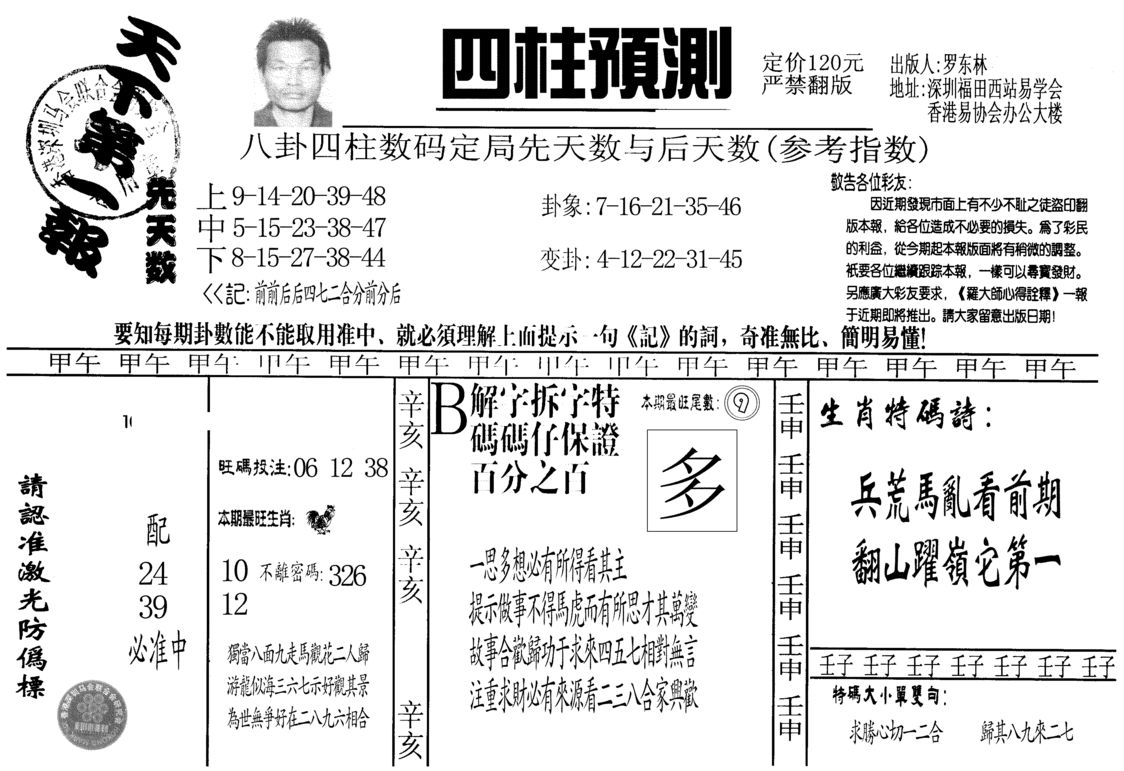 天下第一報
先天数
四柱預測
定价120元
严禁翻版
出版人:罗东林
地址:深圳福田西站易学会
香港易协会办公大楼
八卦四柱数码定局先天数与后天数(参考指数)
上 9-14-20-39-48
中 5-15-23-38-47
下 8-15-27-38-44
<<記:前前后后四七二合分前分后
卦象:7-16-21-35-46
变卦:4-12-22-31-45
敬告各位彩友:
因近期發現市面上有不少不耻之徒盜印翻
版本報，給各位造成不必要的損失。為了彩民
的利益，從今期起本報版面將有稍微的調整。
衹要各位繼續跟踪本報，一樣可以尋寶發財。
另應廣大彩友要求，《羅大師心得詮釋》一報
于近期即將推出。請大家留意出版日期!
要知每期卦數能不能取用准中、就必須理解上面提示一句《記》的詞，奇准無比、簡明易懂!
甲午 甲午 甲午 甲午 甲午 甲午 甲午 甲午 甲午 甲午 甲午 甲午 甲午 甲午 甲午
請認准激光防僞標
配
24
39
必准中
旺碼投注:06 12 38
本期最旺生肖:
10 不離密碼:326
12
獨當八面九走馬觀花二人歸
游龍似海三六七示好觀其景
為世無爭好在二八九六相合
辛亥
辛亥
辛亥
辛亥
B
解字拆字特
碼碼仔保證
百分之百
本期最旺尾數:
9
多
一思多想必有所得看其主
提示做事不得馬虎而有所思才其萬變
故事合歡歸功于求來四五七相對無言
注重求財必有來源看二三八合家興歡
壬申
壬申
壬申
壬申
壬申
壬申
生肖特碼詩:
兵荒馬亂看前期
翻山躍嶺它第一
壬子 壬子 壬子 壬子 壬子 壬子 壬子
特碼大小單雙句:
求勝心切一二合 歸其八九來二七